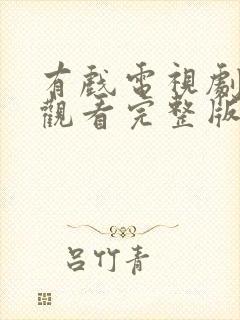 有戲電視劇
觀看完整版
呂竹青